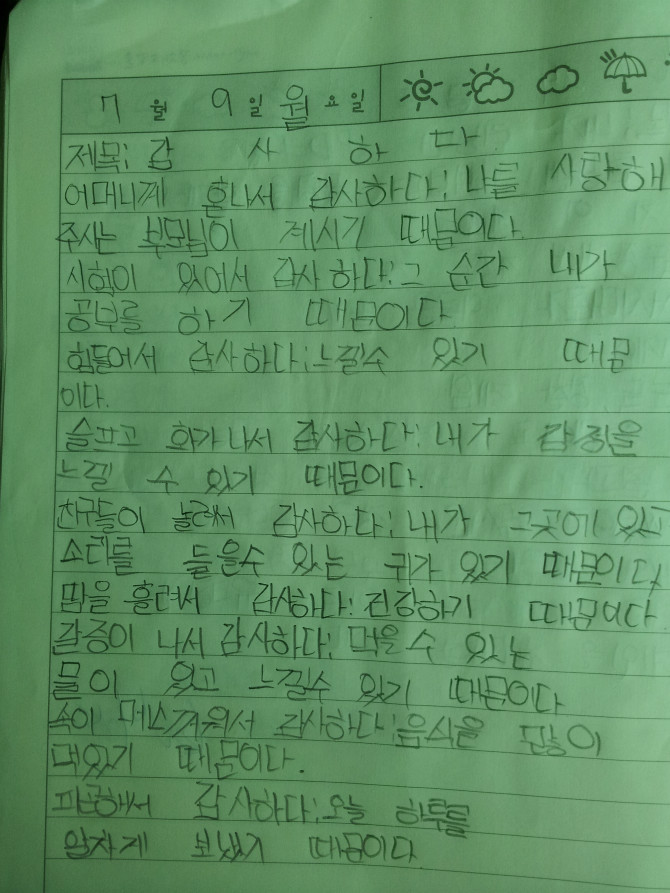 7 월 9 일 월 요일
제목: 감 사 하 다
어머니께 혼나서 감사하다: 나를 사랑해
주시는 부모님이 계시기 때문이다.
시험이 있어서 감사하다: 그 순간 내가
공부를 하기 때문이다
힘들어서 감사하다: 느낄수 있기 때문
이다.
슬프고 화가나서 감사하다: 내가 감정을
느낄 수 있기 때문이다.
친구들이 놀려서 감사하다: 내가 그곳에 있고
소리를 들을수 있는 귀가 있기 때문이다
땀을 흘려서 감사하다: 건강하기 때문이다.
갈증이 나서 감사하다: 먹을수 있는
물이 있고 느낄수 있기 때문이다
속이 메스꺼워서 감사하다: 음식을 많이
먹었기 때문이다.
피곤해서 감사하다: 오늘 하루를
알차게 보냈기 때문이다